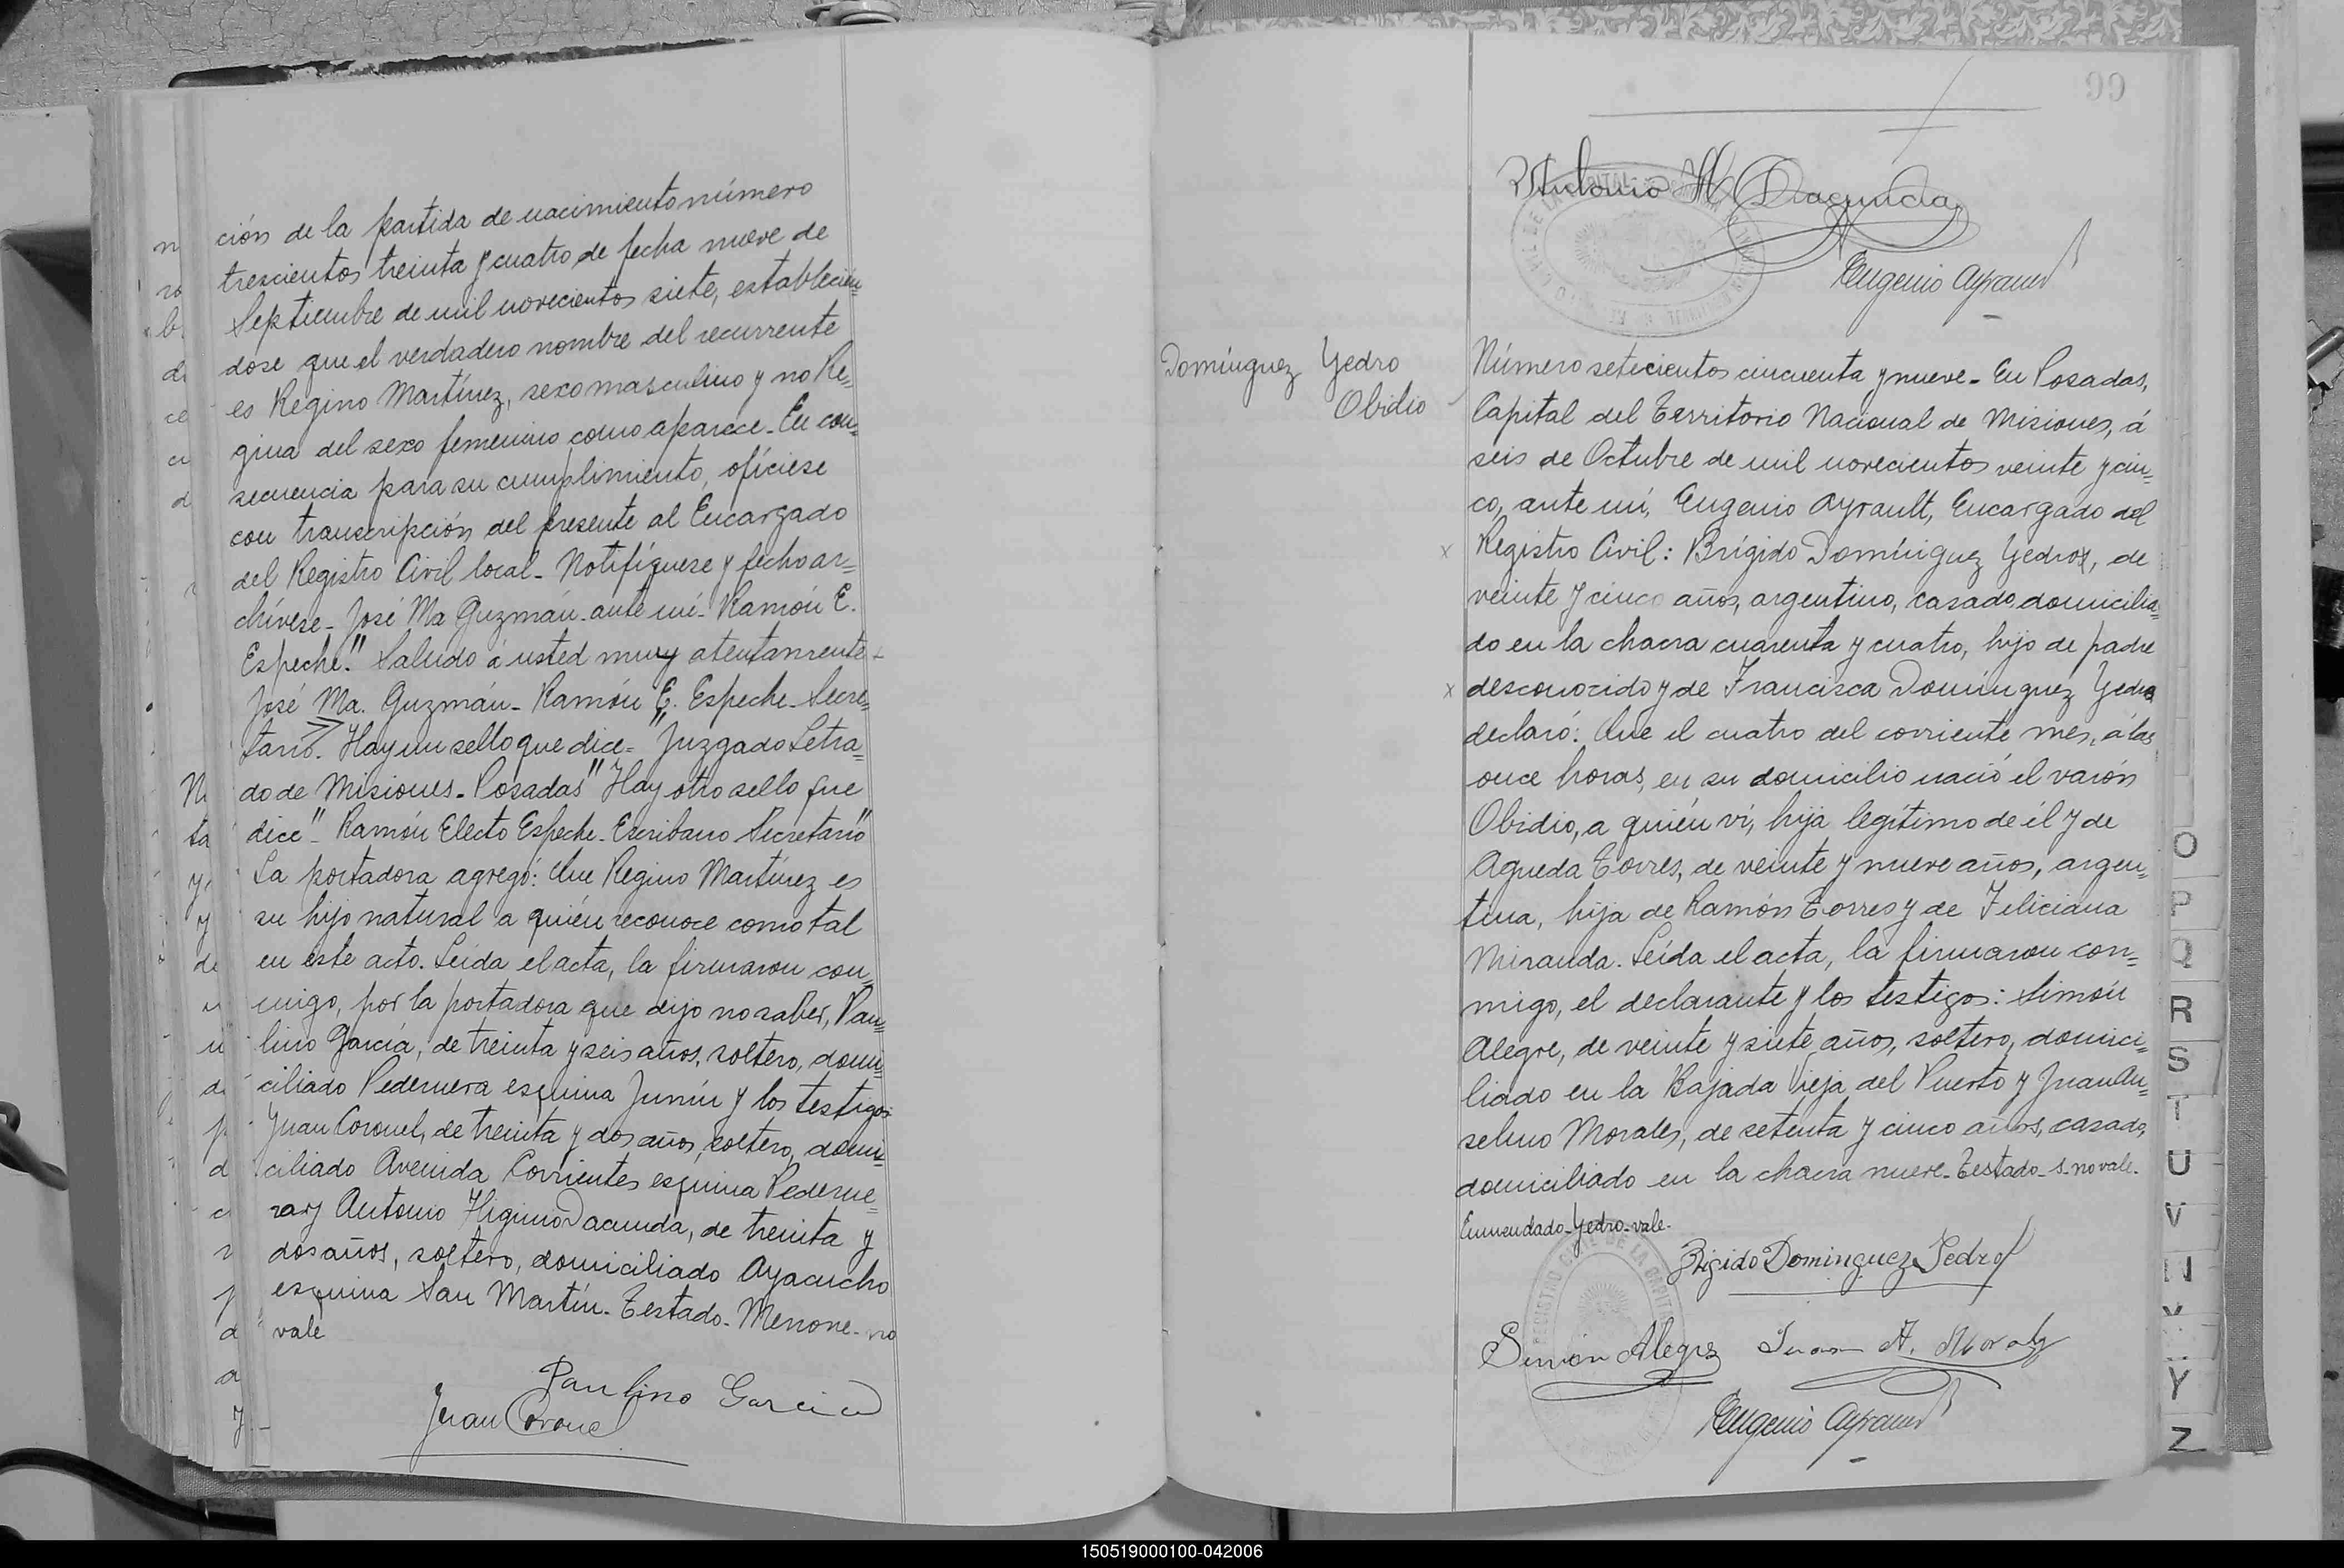 ción de la partida de nacimiento número
trescientos treinta y cuatro de fecha nueve de
Septiembre de mil novecientos siete, establecién=
dose que el verdadero nombre del recurrente
es Regino Martínez, sexo masculino y no Re=
gina del sexo femenino como aparece. En con=
secuencia para su cumplimiento, ofíciese
con transcripción del presente al Encargado
del Registro Civil local. Notifíquese y fecho ar=
chívese. José Ma Guzmán. ante mí. Ramón E.
Espeche." Saludo á usted muy atentamente
José Ma. Guzmán. Ramón E. Espeche. Secre=
tario. Hay un sello que dice= "Juzgado Letra=
do de Misiones. Posadas" Hay otro sello que
dice" Ramón Electo Espeche. Escribano Secretario"
La portadora agregó: Que Regino Martínez es
su hijo natural a quién reconoce como tal
en este acto. Leída el acta, la firmaron con=
migo, por la portadora que dijo no saber, Pau=
lino García, de treinta y seis años, soltero, domi=
ciliado Pedernera esquina Junín y los testigos
Juan Coronel, de treinta y dos años, soltero, domi=
ciliado Avenida Corrientes esquina Pederne=
ra y Antonio Higinio Dacunda, de treinta y
dos años, soltero, domiciliado Ayacucho
esquina San Martín. Testado. Menone. no
vale
Paulino Garcia
Juan Corone
99
Antonio H Dacunda
Eugenio Ayrault
Domínguez Yedro
Obidio
Número setecientos cincuenta y nueve. En Posadas,
Capital del Territorio Nacional de Misiones, á
seis de Octubre de mil novecientos veinte y cin=
co, ante mí, Eugenio Ayrault, Encargado del
Registro Civil: Brígido Domínguez Yedros, de
veinte y cinco años, argentino, casado, domicilia=
do en la chacra cuarenta y cuatro, hijo de padre
desconocido y de Francisca Domínguez Yedro
declaró: Que el cuatro del corriente mes, á las
once horas, en su domicilio nació el varón
Obidio, a quién ví, hija legítimo de él y de
Agueda Torres, de veinte y nueve años, argen=
tina, hija de Ramón Torres y de Feliciana
Miranda. Leída el acta, la firmaron con=
migo, el declarante y los testigos: Simón
Alegre, de veinte y siete años, soltero, domici=
liado en la Bajada Vieja del Puerto y Juan An=
selmo Morales, de setenta y cinco años, casado,
domiciliado en la chacra nueve. Testado. s. no vale.
Enmendado. Yedro. vale.
Brigido Dominguez Yedro
Simon Alegre Juan A. Morales
Eugenio Ayrault
O
P
Q
R
S
T
U
V
W
X
Y
Z
150519000100-042006